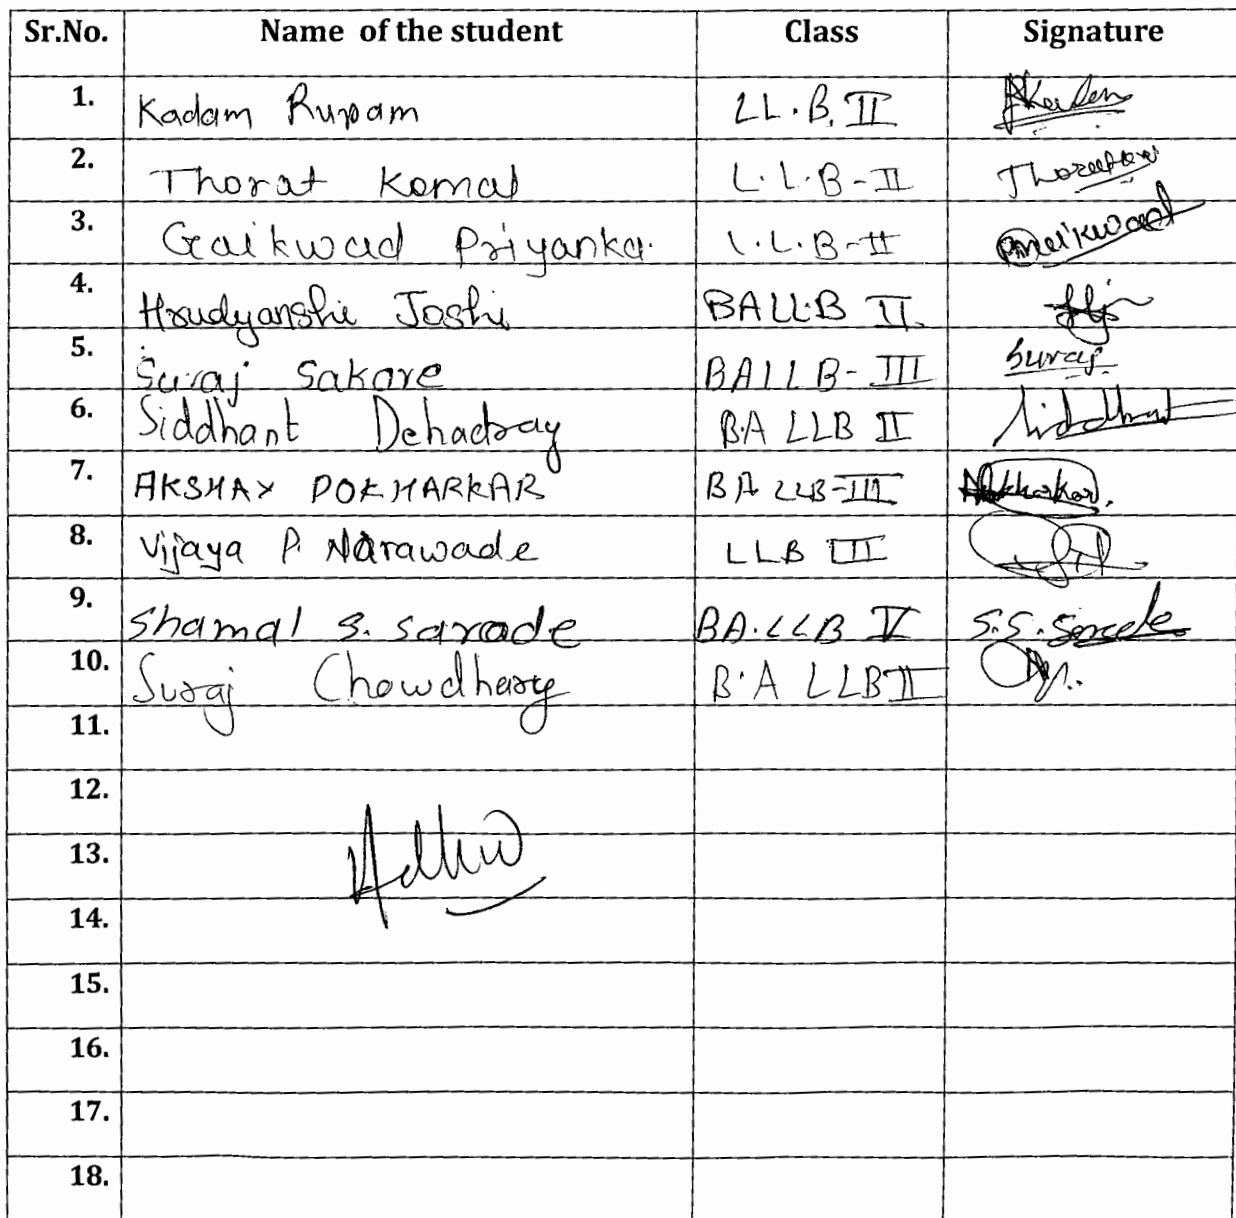 Sr.No. Name of the student Class Signature
1. Kadam Rupam LL.B. II
2. Thorat Komal L.L.B-II
3. Gaikwad Priyanka. L.L.B-II Gaikwad
4. Hrudyanshi Joshi BALL.B II.
5. Suraj Sakore BALLB-III Suraj
6. Siddhant Dehadray B.A LLB II Siddhant
7. AKSHAY POKHARKAR BA LLB-III
8. Vijaya P. Narawade LLB III
9. Shamal S. Sarode BA.LLB V S.S. Sarode
10. Suraj Chowdhary B.A LLB II
11.
12.
13.
14.
15.
16.
17.
18.